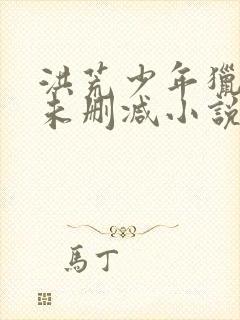 洪荒少年獵
未刪減小說
馬丁